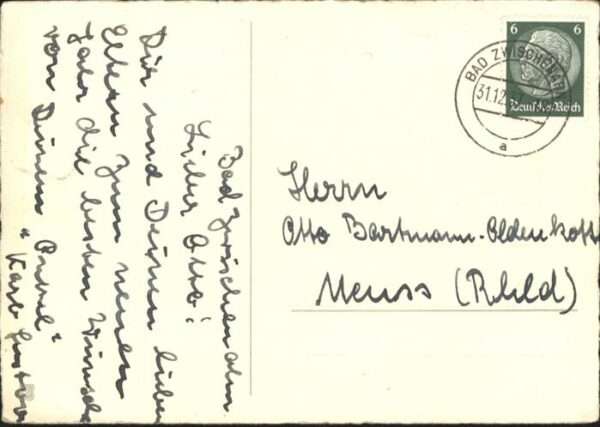 Bad Zwischenahn
Lieber Otto!
Dir und Deinen lieben
Eltern zum neuen
Jahr die besten Wünsche
von Deinem Onkel
"Karl Gustav
6 6
Deutsches Reich
BAD ZWISCHENAHN
31.12.
a
Herrn
Otto Bartmann-Oldenkott
Neuss (Rhld)